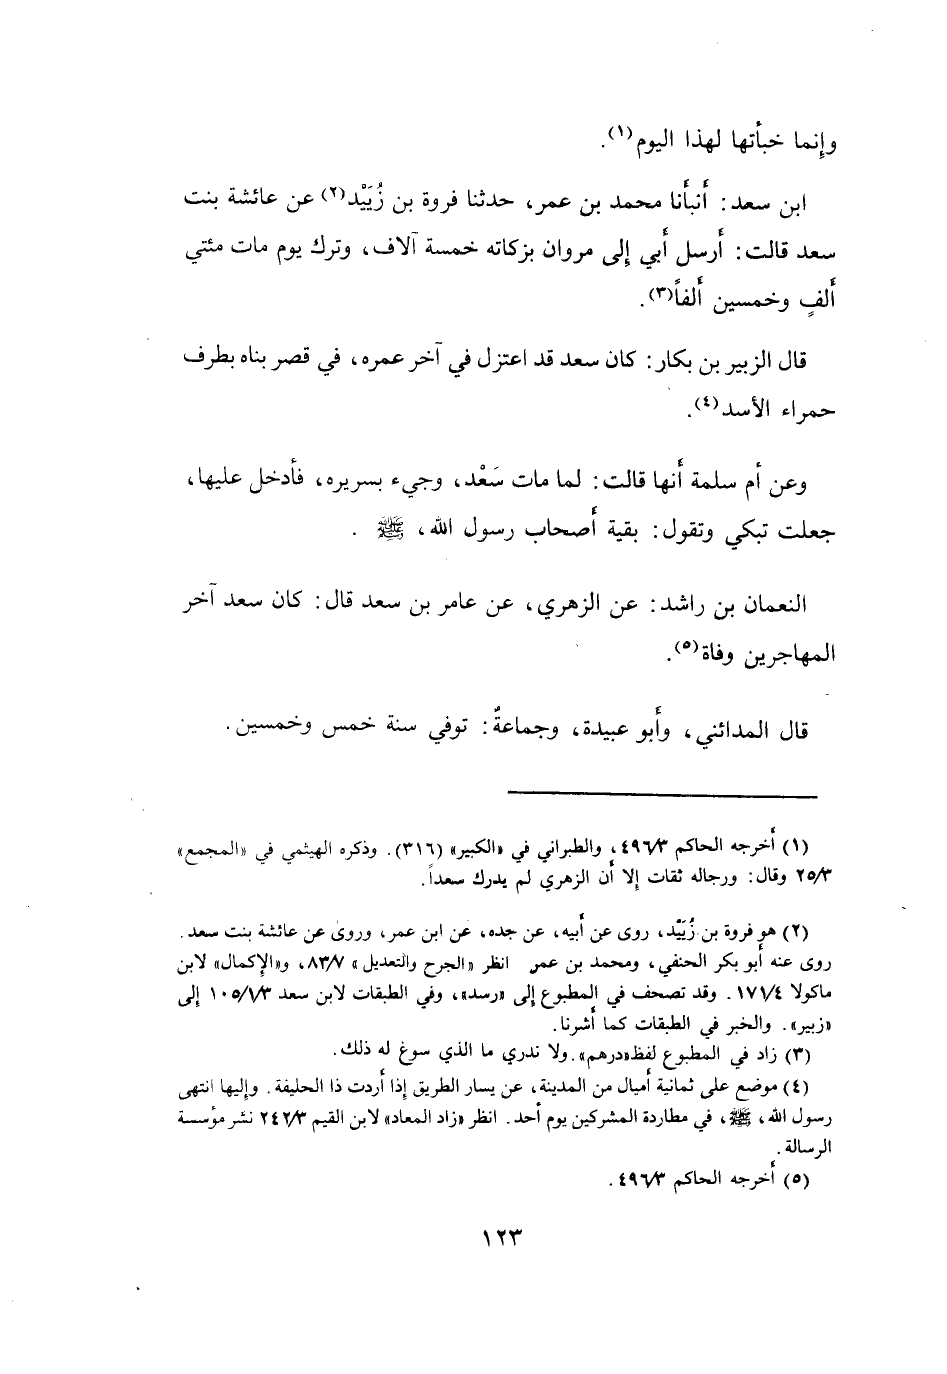 وإنما خبأتها لهذا اليوم(١).
ابن سعد: أنبأنا محمد بن عمر، حدثنا فروة بن زُيَيْد(٢) عن عائشة بنت
سعد قالت: أرسل أبي إلى مروان بزكاته خمسة آلاف، وترك يوم مات مئتي
ألفٍ وخمسين ألفاً(٣).
قال الزبير بن بكار: كان سعد قد اعتزل في آخر عمره، في قصر بناه بطرف
حمراء الأسد(٤).
وعن أم سلمة أنها قالت: لما مات سَعْد، وجيء بسريره، فأدخل عليها،
جعلت تبكي وتقول: بقية أصحاب رسول الله، ﷺ .
النعمان بن راشد: عن الزهري، عن عامر بن سعد قال: كان سعد آخر
المهاجرين وفاة(٥).
قال المدائني، وأبو عبيدة، وجماعةٌ: توفي سنة خمس وخمسين.
(١) أخرجه الحاكم ٤٩٦/٣، والطبراني في «الكبير» (٣١٦). وذكره الهيثمي في «المجمع»
٢٥/٣ وقال: ورجاله ثقات إلا أن الزهري لم يدرك سعداً.
(٢) هو فروة بن زُيَيْد، روى عن أبيه، عن جده، عن ابن عمر، وروى عن عائشة بنت سعد.
روى عنه أبو بكر الحنفي، ومحمد بن عمر انظر «الجرح والتعديل» ٨٣/٧، و«الإكمال» لابن
ماكولا ١٧١/٤. وقد تصحف في المطبوع إلى «رسد»، وفي الطبقات لابن سعد ١٠٥/١/٣ إلى
«زبير». والخبر في الطبقات كما أشرنا.
(٣) زاد في المطبوع لفظ«درهم».ولا ندري ما الذي سوغ له ذلك.
(٤) موضع على ثمانية أميال من المدينة، عن يسار الطريق إذا أردت ذا الحليفة. وإليها انتهى
رسول الله، ﷺ، في مطاردة المشركين يوم أحد. انظر «زاد المعاد» لابن القيم ٢٤٢/٣ نشر مؤسسة
الرسالة.
(٥) أخرجه الحاكم ٤٩٦/٣.
١٢٣